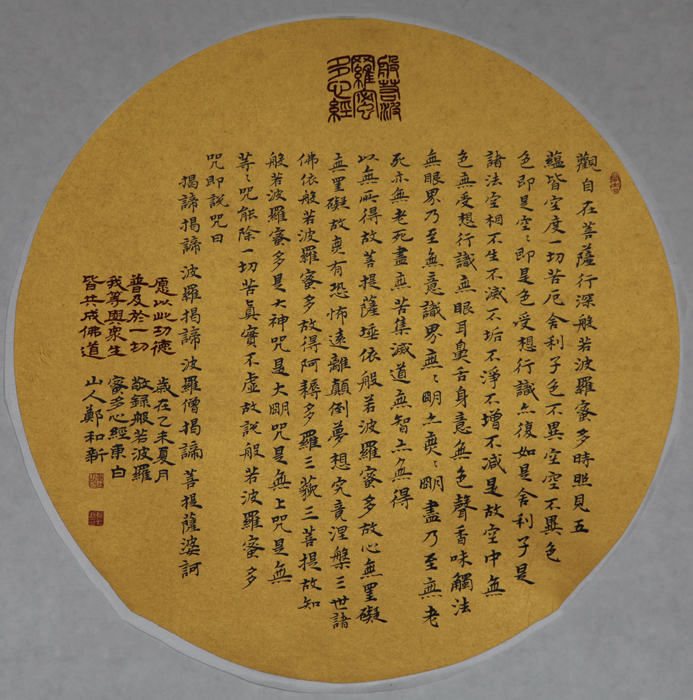 般若波
羅蜜
多心經
觀自在菩薩行深般若波羅蜜多時照見五
蘊皆空度一切苦厄舍利子色不異空空不異色
色即是空〻即是色受想行識亦復如是舍利子是
諸法空相不生不滅不垢不淨不增不减是故空中無
色無受想行識無眼耳鼻舌身意無色聲香味觸法
無眼界乃至無意識界無〻明亦無〻明盡乃至無老
死亦無老死盡無苦集滅道無智亦無得
以無所得故菩提薩埵依般若波羅蜜多故心無罣礙
無罣礙故無有恐怖遠離顛倒夢想究竟涅槃三世諸
佛依般若波羅蜜多故得阿耨多羅三藐三菩提故知
般若波羅蜜多是大神咒是大明咒是無上咒是無
等〻咒能除一切苦真實不虛故說般若波羅蜜多
咒即說咒曰
揭諦揭諦 波羅揭諦 波羅僧揭諦 菩提薩婆訶
愿以此功德
普及於一切
我等與衆生
皆共成佛道
歲在乙未夏月
敬録般若波羅
蜜多心經東白
山人鄭和新